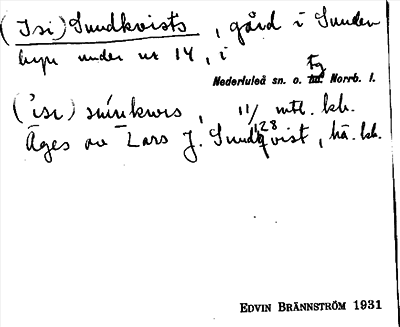 (Isi) Sundkvists, gård i Sunden
byn under nr 14, i
Nederluleå sn. o. tg Norrb. l.
('isi) súnkwis, 11/128 mtl. kb.
Äges av Lars J. Sundqvist, hä. kb.
EDVIN BRÄNNSTRÖM 1931